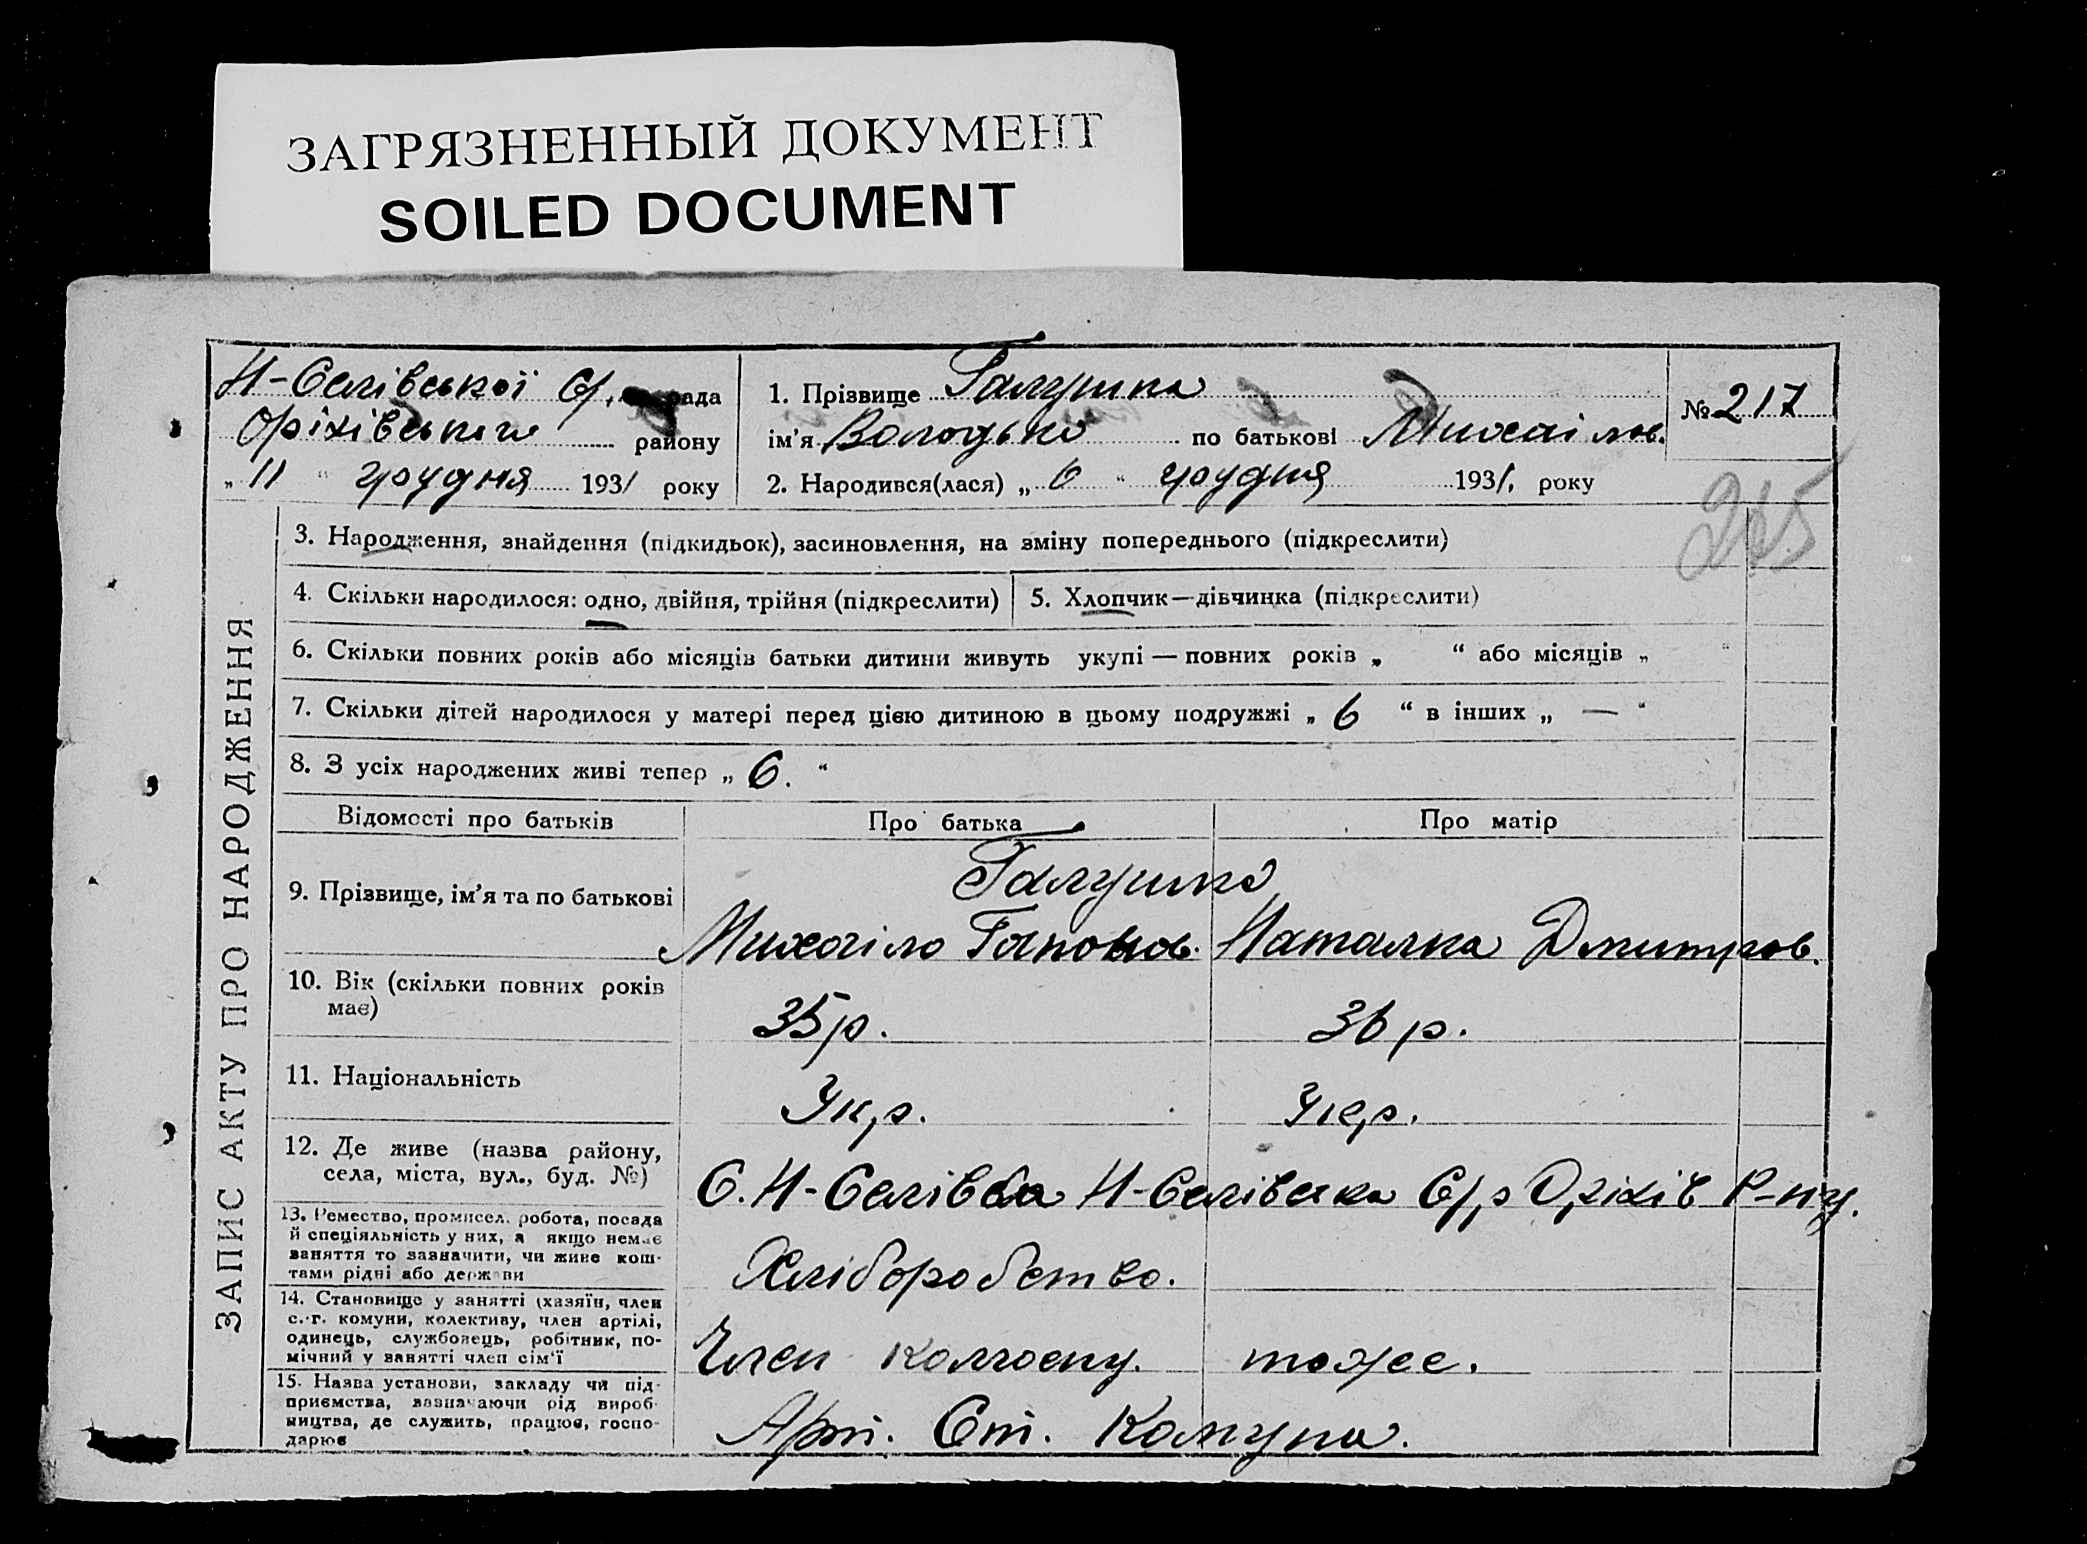 ЗАГРЯЗНЕННЫЙ ДОКУМЕНТ
SOILED DOCUMENT
Н-Селівської С/. рада
Оріхівського району
„ 11 “ грудня 1931 року
1. Прізвище Галушка
ім’я Володько по батькові Михайлов.
2. Народився(лася) „ 6 “ грудня 1931, року
№ 217
215
ЗАПИС АКТУ ПРО НАРОДЖЕННЯ
3. Народження, знайдення (підкидьок), засиновлення, на зміну попереднього (підкреслити)
4. Скільки народилося: одно, двійня, трійня (підкреслити)
5. Хлопчик—дівчинка (підкреслити)
6. Скільки повних років або місяців батьки дитини живуть укупі — повних років „ “ або місяців „ “
7. Скільки дітей народилося у матері перед цією дитиною в цьому подружжі „ 6 “ в інших „ — “
8. З усіх народжених живі тепер „ 6. “
Відомості про батьків
Про батька
Про матір
9. Прізвище, ім’я та по батькові
Галушка
Михайло Гапонов. Наталка Дмитров.
10. Вік (скільки повних років
має)
35 р. 36 р.
11. Національність
Укр. Укр.
12. Де живе (назва району,
села, міста, вул., буд. №)
С. Н-Селівка Н-Селівська С/р Оріхів Р-ну.
13. Ремество, промисел, робота, посада
й спеціяльність у них, а якщо немає
заняття то зазначити, чи живе кош-
тами рідні або держави
Хліборобство.
14. Становище у занятті (хазяїн, член
с.-г. комуни, колективу, член артілі,
одинець, службовець, робітник, по-
мічний у занятті член сім’ї
Член колгоспу. тоже.
15. Назва установи, закладу чи під-
приємства, зазначаючи рід вироб-
ництва, де служить, працює, госпо-
дарює
Арт. Ст. Комуна.